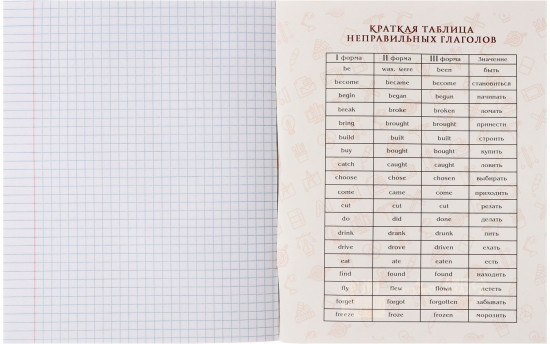 КРАТКАЯ ТАБЛИЦА
НЕПРАВИЛЬНЫХ ГЛАГОЛОВ
I форма II форма III форма Значение
be was, were been быть
become became become становиться
begin began begun начинать
break broke broken ломать
bring brought brought принести
build built built строить
buy bought bought купить
catch caught caught ловить
choose chose chosen выбирать
come came come приходить
cut cut cut резать
do did done делать
drink drank drunk пить
drive drove driven ехать
eat ate eaten есть
find found found находить
fly flew flown лететь
forget forgot forgotten забывать
freeze froze frozen морозить